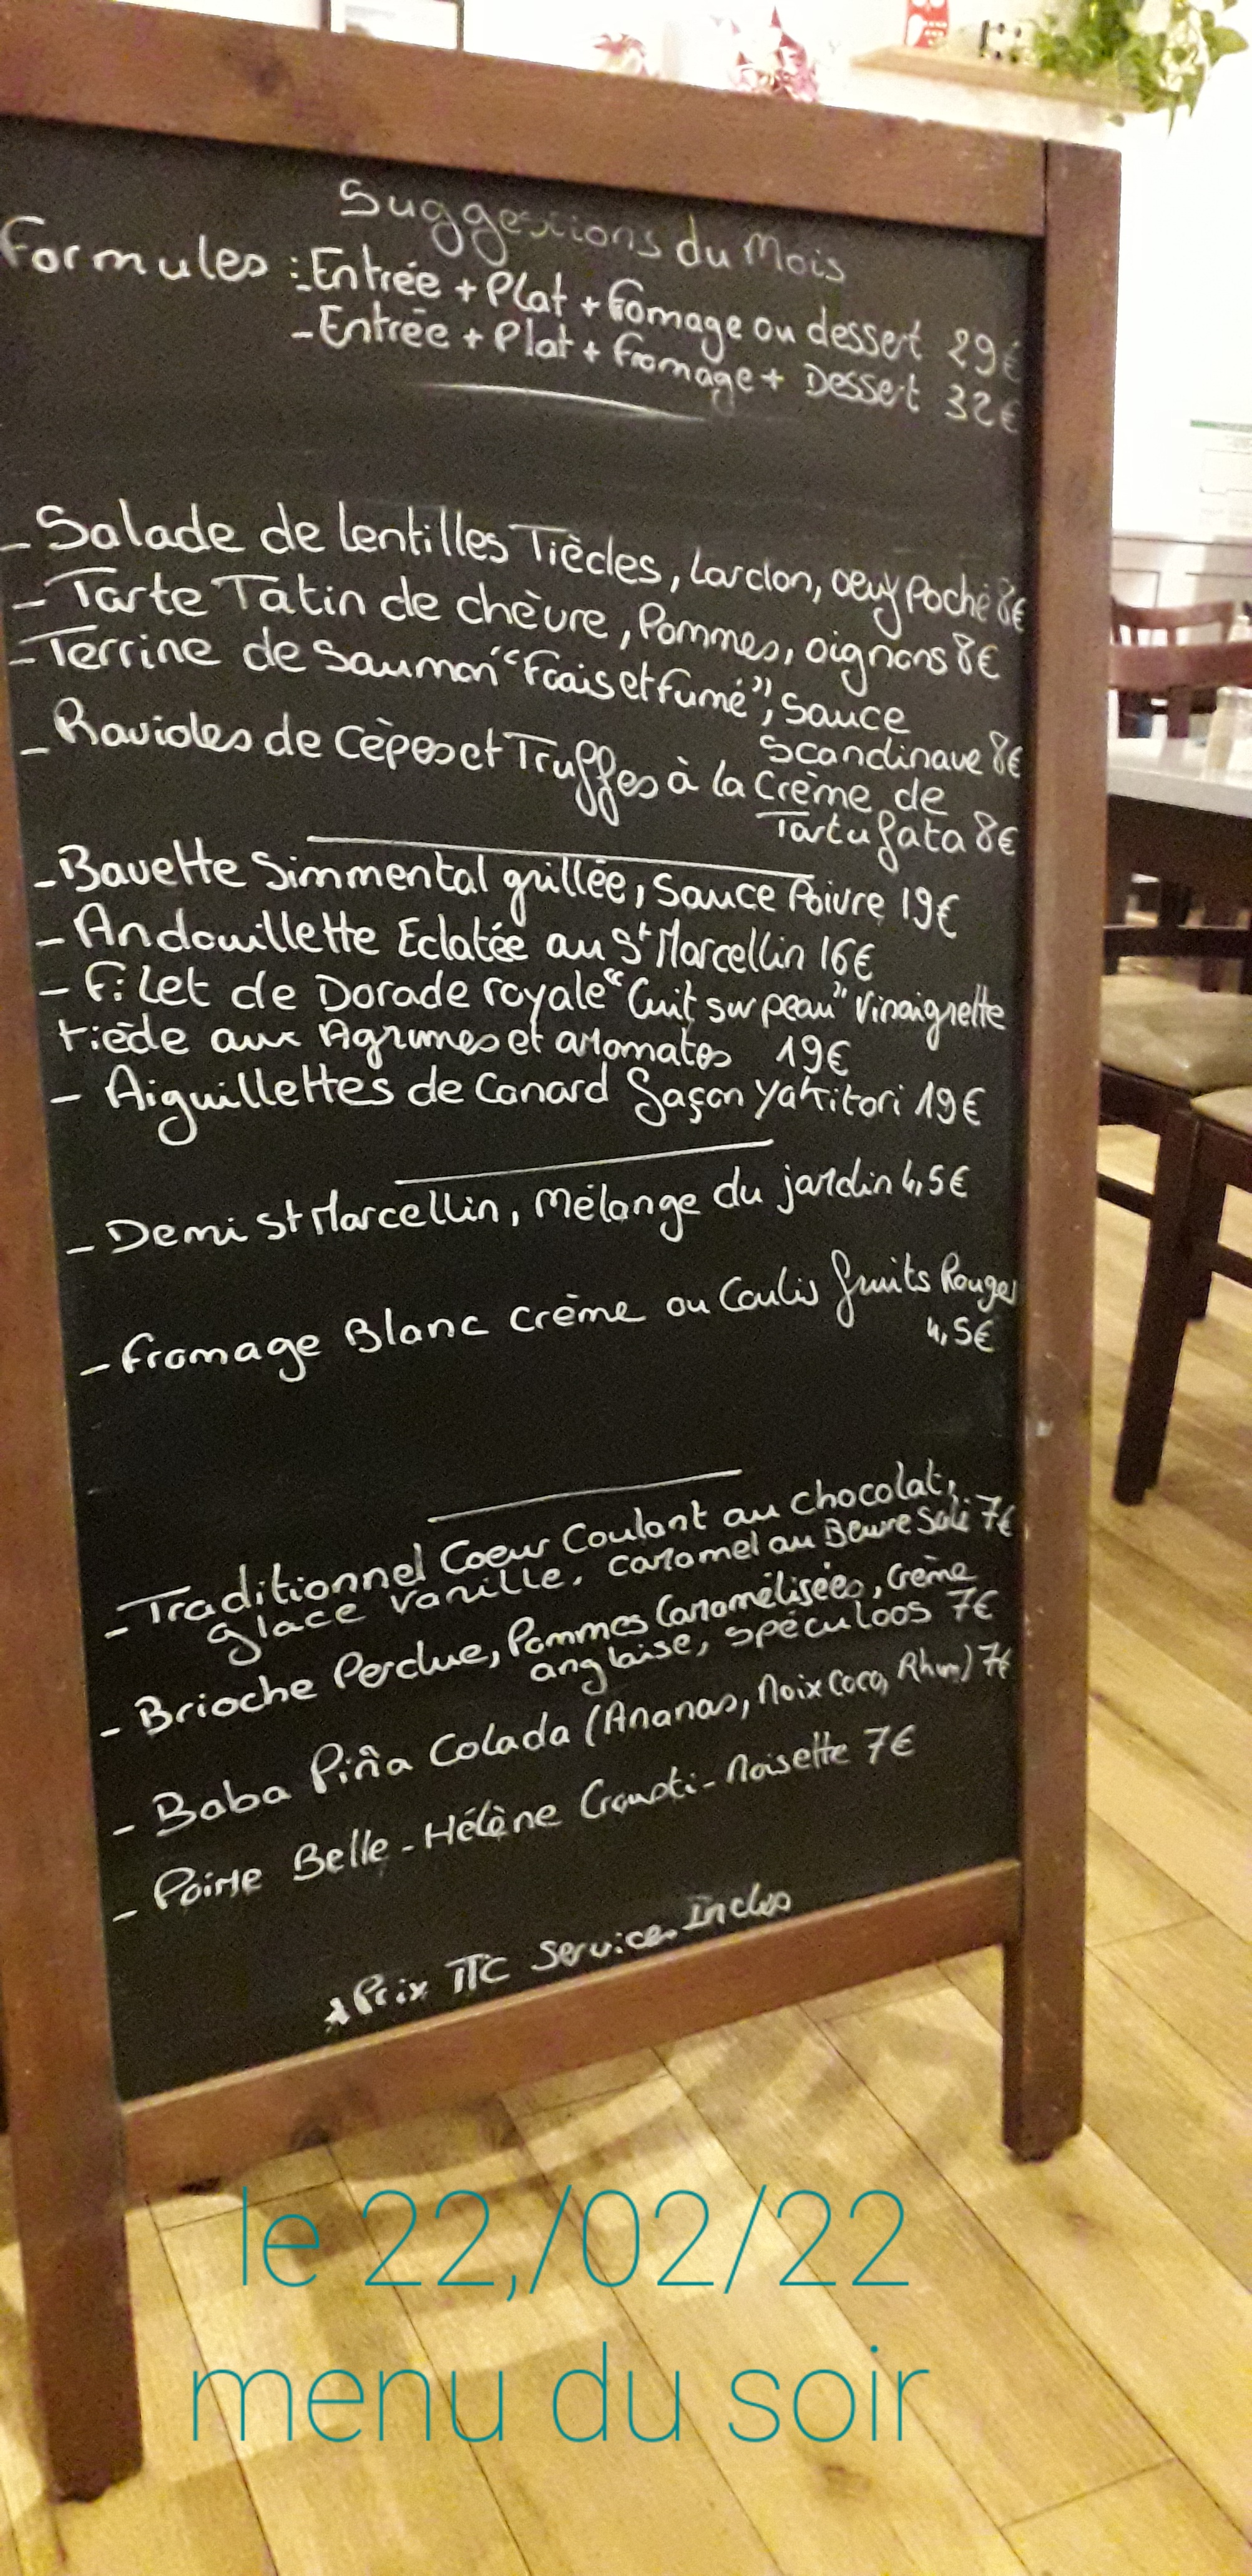 Suggestions du Mois
Formules : - Entrée + Plat + fromage ou dessert 29€
- Entrée + Plat + fromage + Dessert 32€
- Salade de lentilles Tièdes, Lardon, oeuf Poché 8€
- Tarte Tatin de chèvre, Pommes, oignons 8€
- Terrine de Saumon "Frais et fumé", Sauce
Scandinave 8€
- Ravioles de Cèpes et Truffes à la Crème de
Tartufata 8€
- Bavette Simmental grillée, Sauce Poivre 19€
- Andouillette Eclatée au St Marcellin 16€
- Filet de Dorade royale "Cuit sur peau" Vinaigrette
tiède aux Agrumes et aromates 19€
- Aiguillettes de Canard façon yakitori 19€
- Demi St Marcellin, Mélange du jardin 4,5€
- Fromage Blanc crème ou Coulis fruits Rouges
4,5€
- Traditionnel Coeur Coulant au chocolat,
glace vanille, caramel au Beurre Salé 7€
- Brioche Perdue, Pommes Caramélisées, Crème
anglaise, spéculoos 7€
- Baba Piña Colada (Ananas, Noix Coco, Rhum) 7€
- Poire Belle-Hélène Crousti-Noisette 7€
* Prix TTC Services Inclus
le 22,/02/22
menu du soir